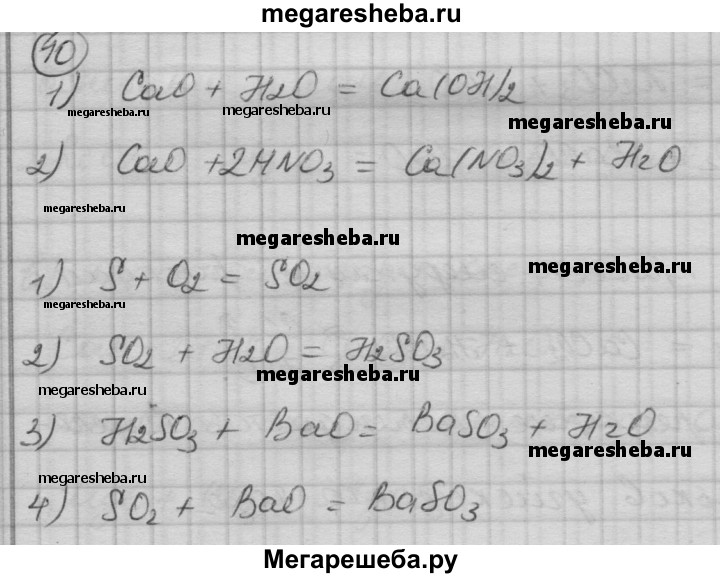 megaresheba.ru
10
1) CaO + H2O = Ca(OH)2
megaresheba.ru megaresheba.ru megaresheba.ru
2) CaO + 2HNO3 = Ca(NO3)2 + H2O
megaresheba.ru
megaresheba.ru
megaresheba.ru
1) S + O2 = SO2
megaresheba.ru
2) SO2 + H2O = H2SO3
megaresheba.ru megaresheba.ru
3) H2SO3 + BaO = BaSO3 + H2O
megaresheba.ru
megaresheba.ru
4) SO2 + BaO = BaSO3
Мегарешеба.ру